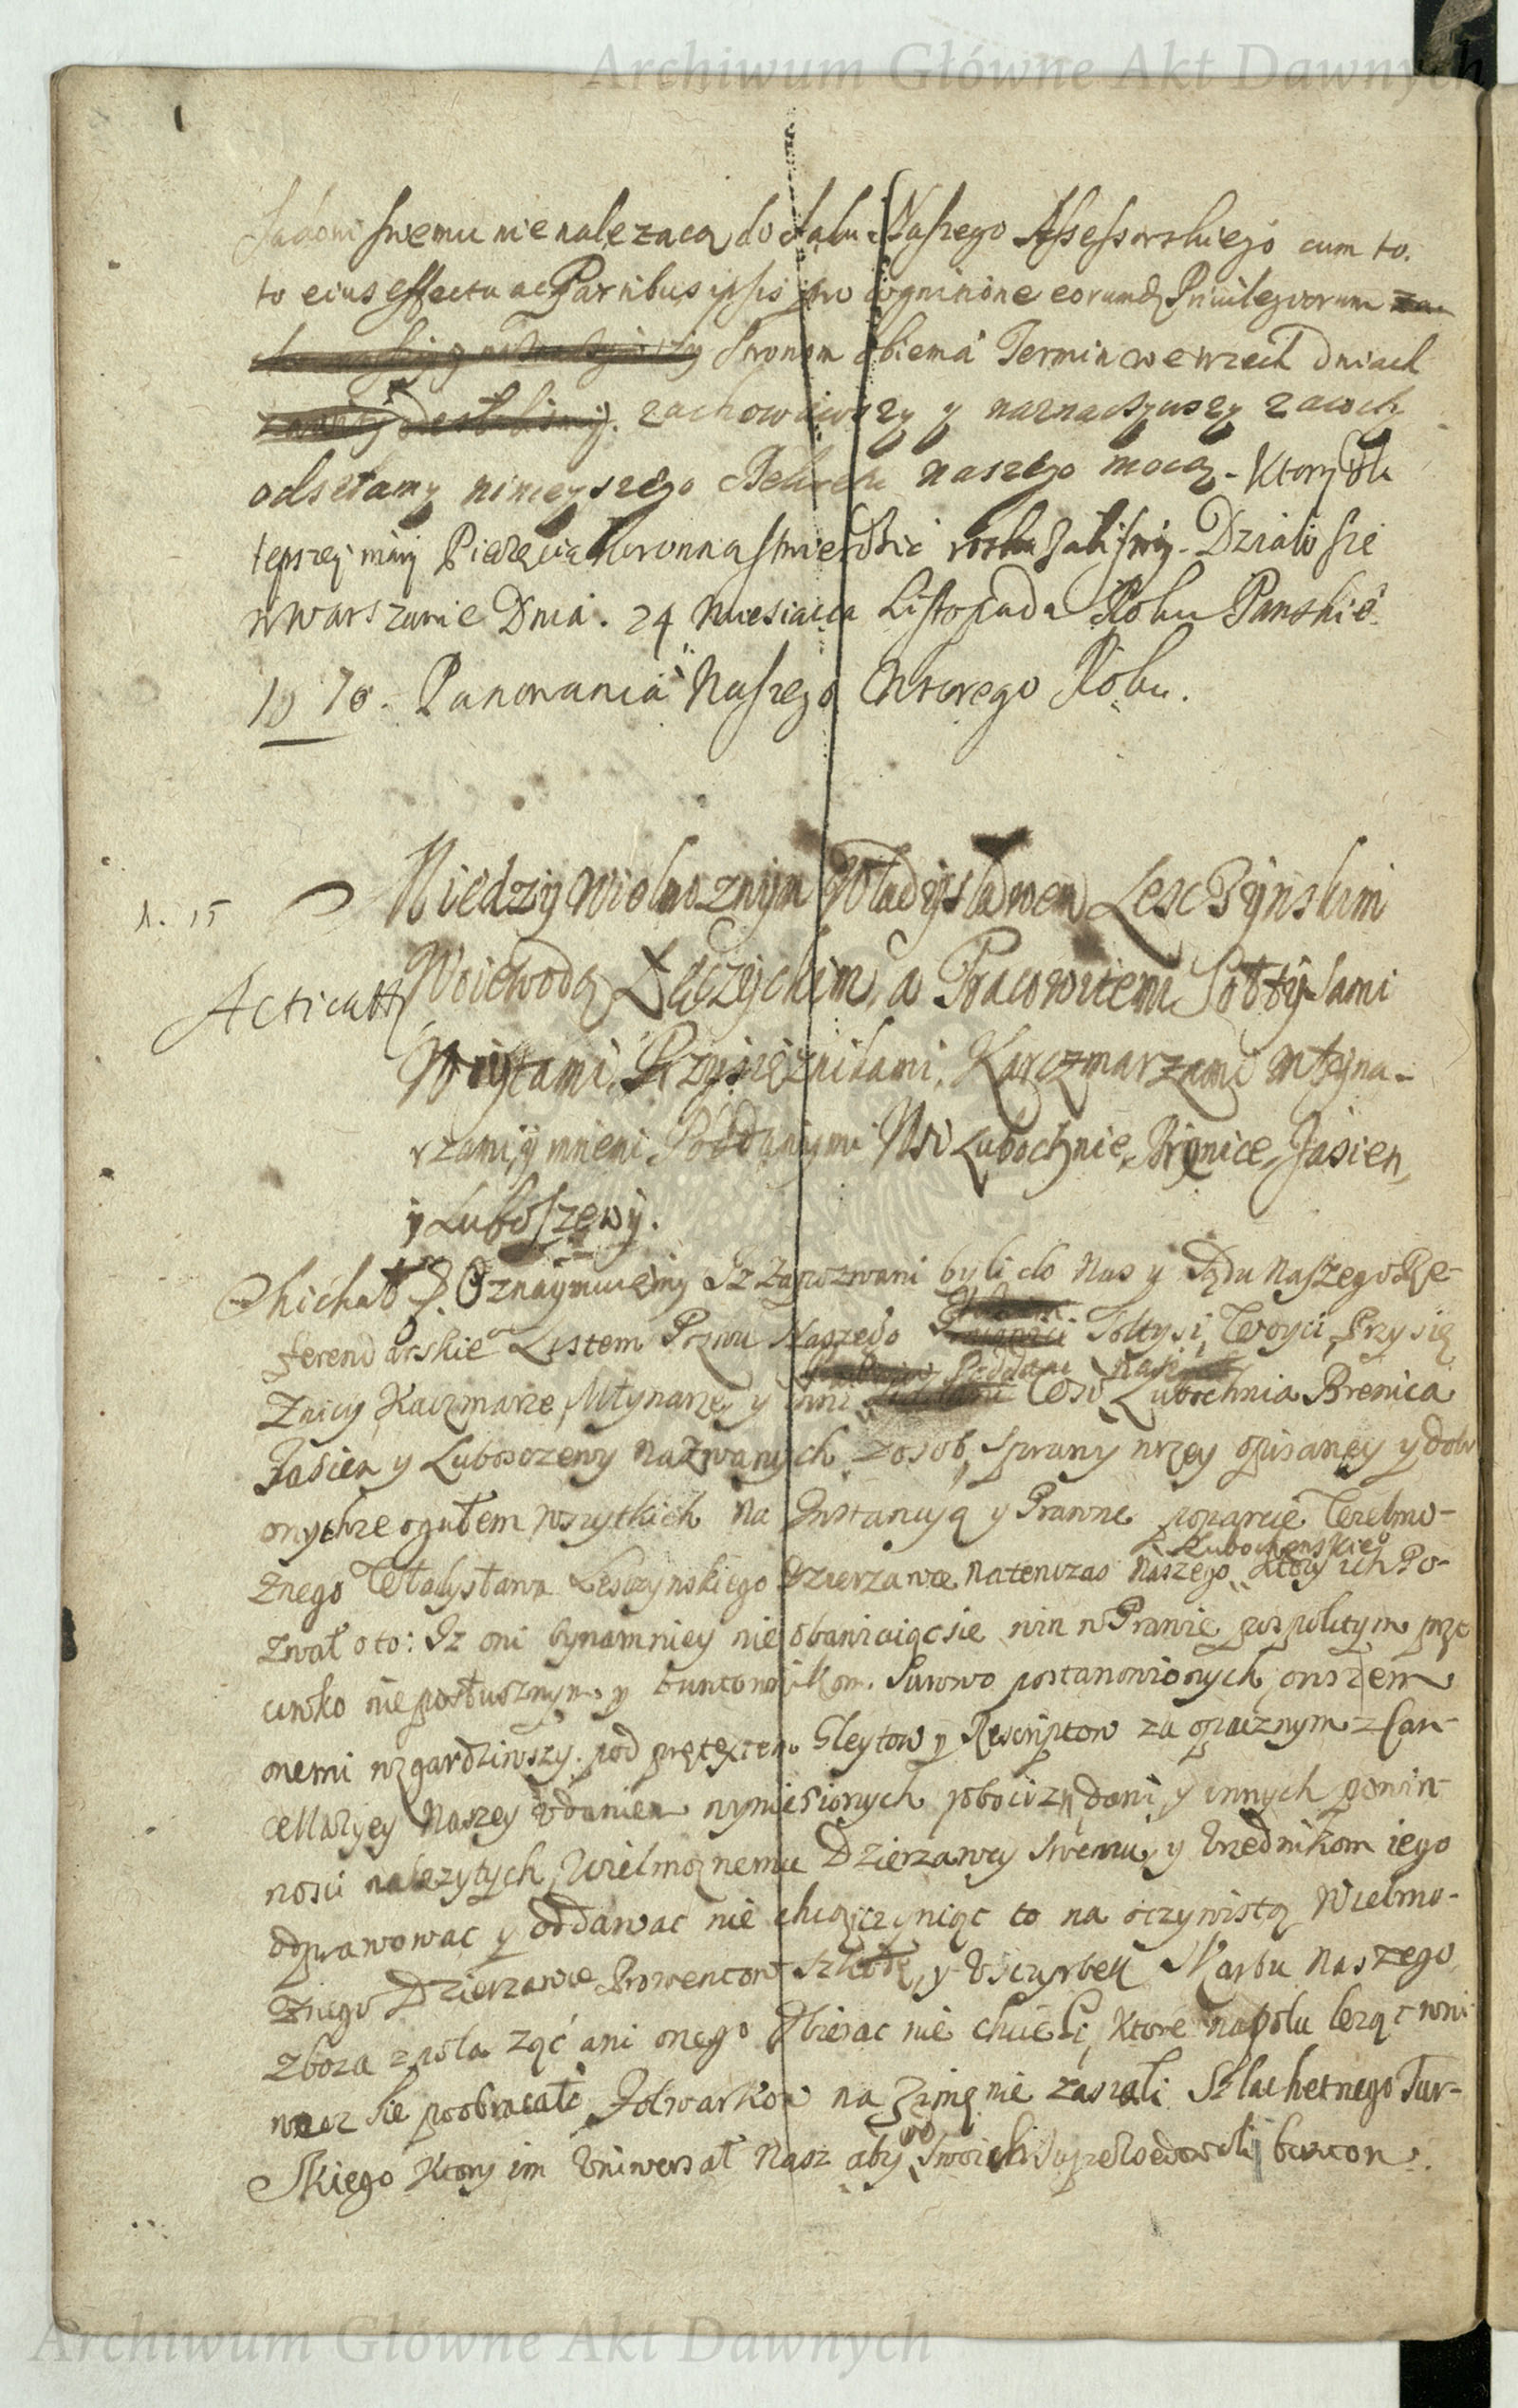 Archiwum Główne Akt Dawnych
Sądowi swemu nienalezacą do Sądu Naszego Assessorskiego cum to.
to eius effectu ac Partibus ipsis pro cognitione eorumdq Priuilegiorum
Stronom obiema Termin we trzech Dniach
zachowawszy y naznaczywszy
odsełamy ninieyszego Dekretu naszego mocą. Ktory dla
lepszej miary Pieczęcią Koronną stwierdzic roskazalismy. Działo się
w Warszawie Dnia. 24 Miesiaca Listopada Roku Panskie°
1670. Panowania Naszego Wtorego Roku.
Miedzy Wielmoznym Władysławem Lesczynskim
N. 15
Acticatt
Woiewodą Łęczyckim, a Pracowitemi Sołtysami
Woytami, Przysięznikami, Karczmarzami Młyna-
rzami, y innemi Poddanymi Wsi Lubochnie, Brenice, Jasien,
y Luboszewy.
Michał &. Oznaymuiemy Iz Zapozwani byli do Nas y Sądu Naszego Re-
ferendarskie° Listem Pozwu Naszego Sołtysi, Woyci, Przysię
Poddani Nasi
znicy Kaczmarze, Młynarze, y inni Wsi Lubochnia Brenica
Jasien y Luboszewy nazwanych z osob, sprawy wzey opisaney y dobr
onychze ogułem wszytkich na Instancyą y Prawne poparcie Wielmo-
Lubochenskie°
znego Władysława Lesczynskiego Dzierzawce natenczas Naszego, ktory ich Po-
zwał o to: Iz oni bynamniey nie obawiaiąc sie win w Prawie pospolitym prze
ciwko nieposłusznym y buntownikom. Surowo postanowionych, owszem
onemi wzgardziwszy. pod pretextem Gleytow y Rescriptow za opacznym z Can-
cellaryey Naszey udaniem wyniesionych pobocizn, dani y innych powin-
nosci nalezytych, Wielmoznemu Dzierzawcy swemu, y Urzednikom iego
odprawowac y oddawac nie chcą, czyniąc to na oczywistą Wielmo-
znego Dzierzawce Prowentow szkodę, y Uszczerbek Skarbu Naszego,
Zboza z pola ząć ani onego zbierac nie chcieli, ktore na polu leząc wni
wecz sie poobracało, Folwarkow na Zimę nie zasiali Szlachetnego Tur-
skiego ktory im Uniwersał Nasz aby swoich buntow.
Archiwum Główne Akt Dawnych